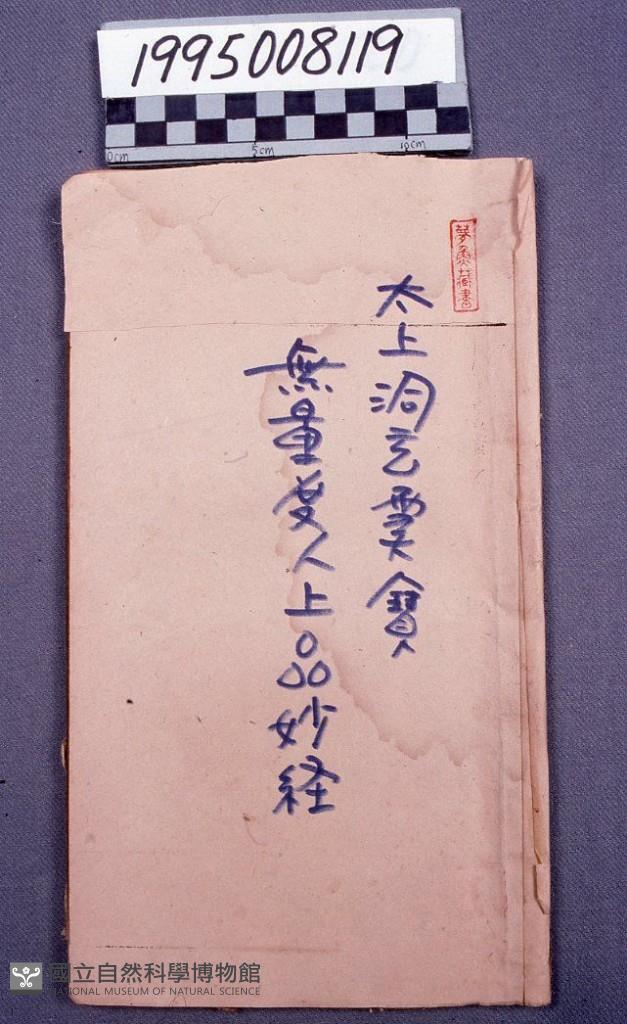 1995008119
0cm 5cm 10cm
夢魚藏書
太上洞玄灵寶
無量度人上品妙経
國立自然科學博物館
NATIONAL MUSEUM OF NATURAL SCIENCE